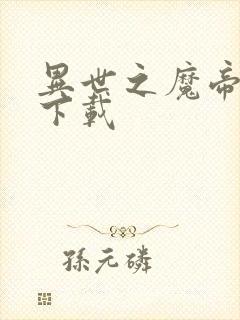 異世之魔帝
下載
孫元磷